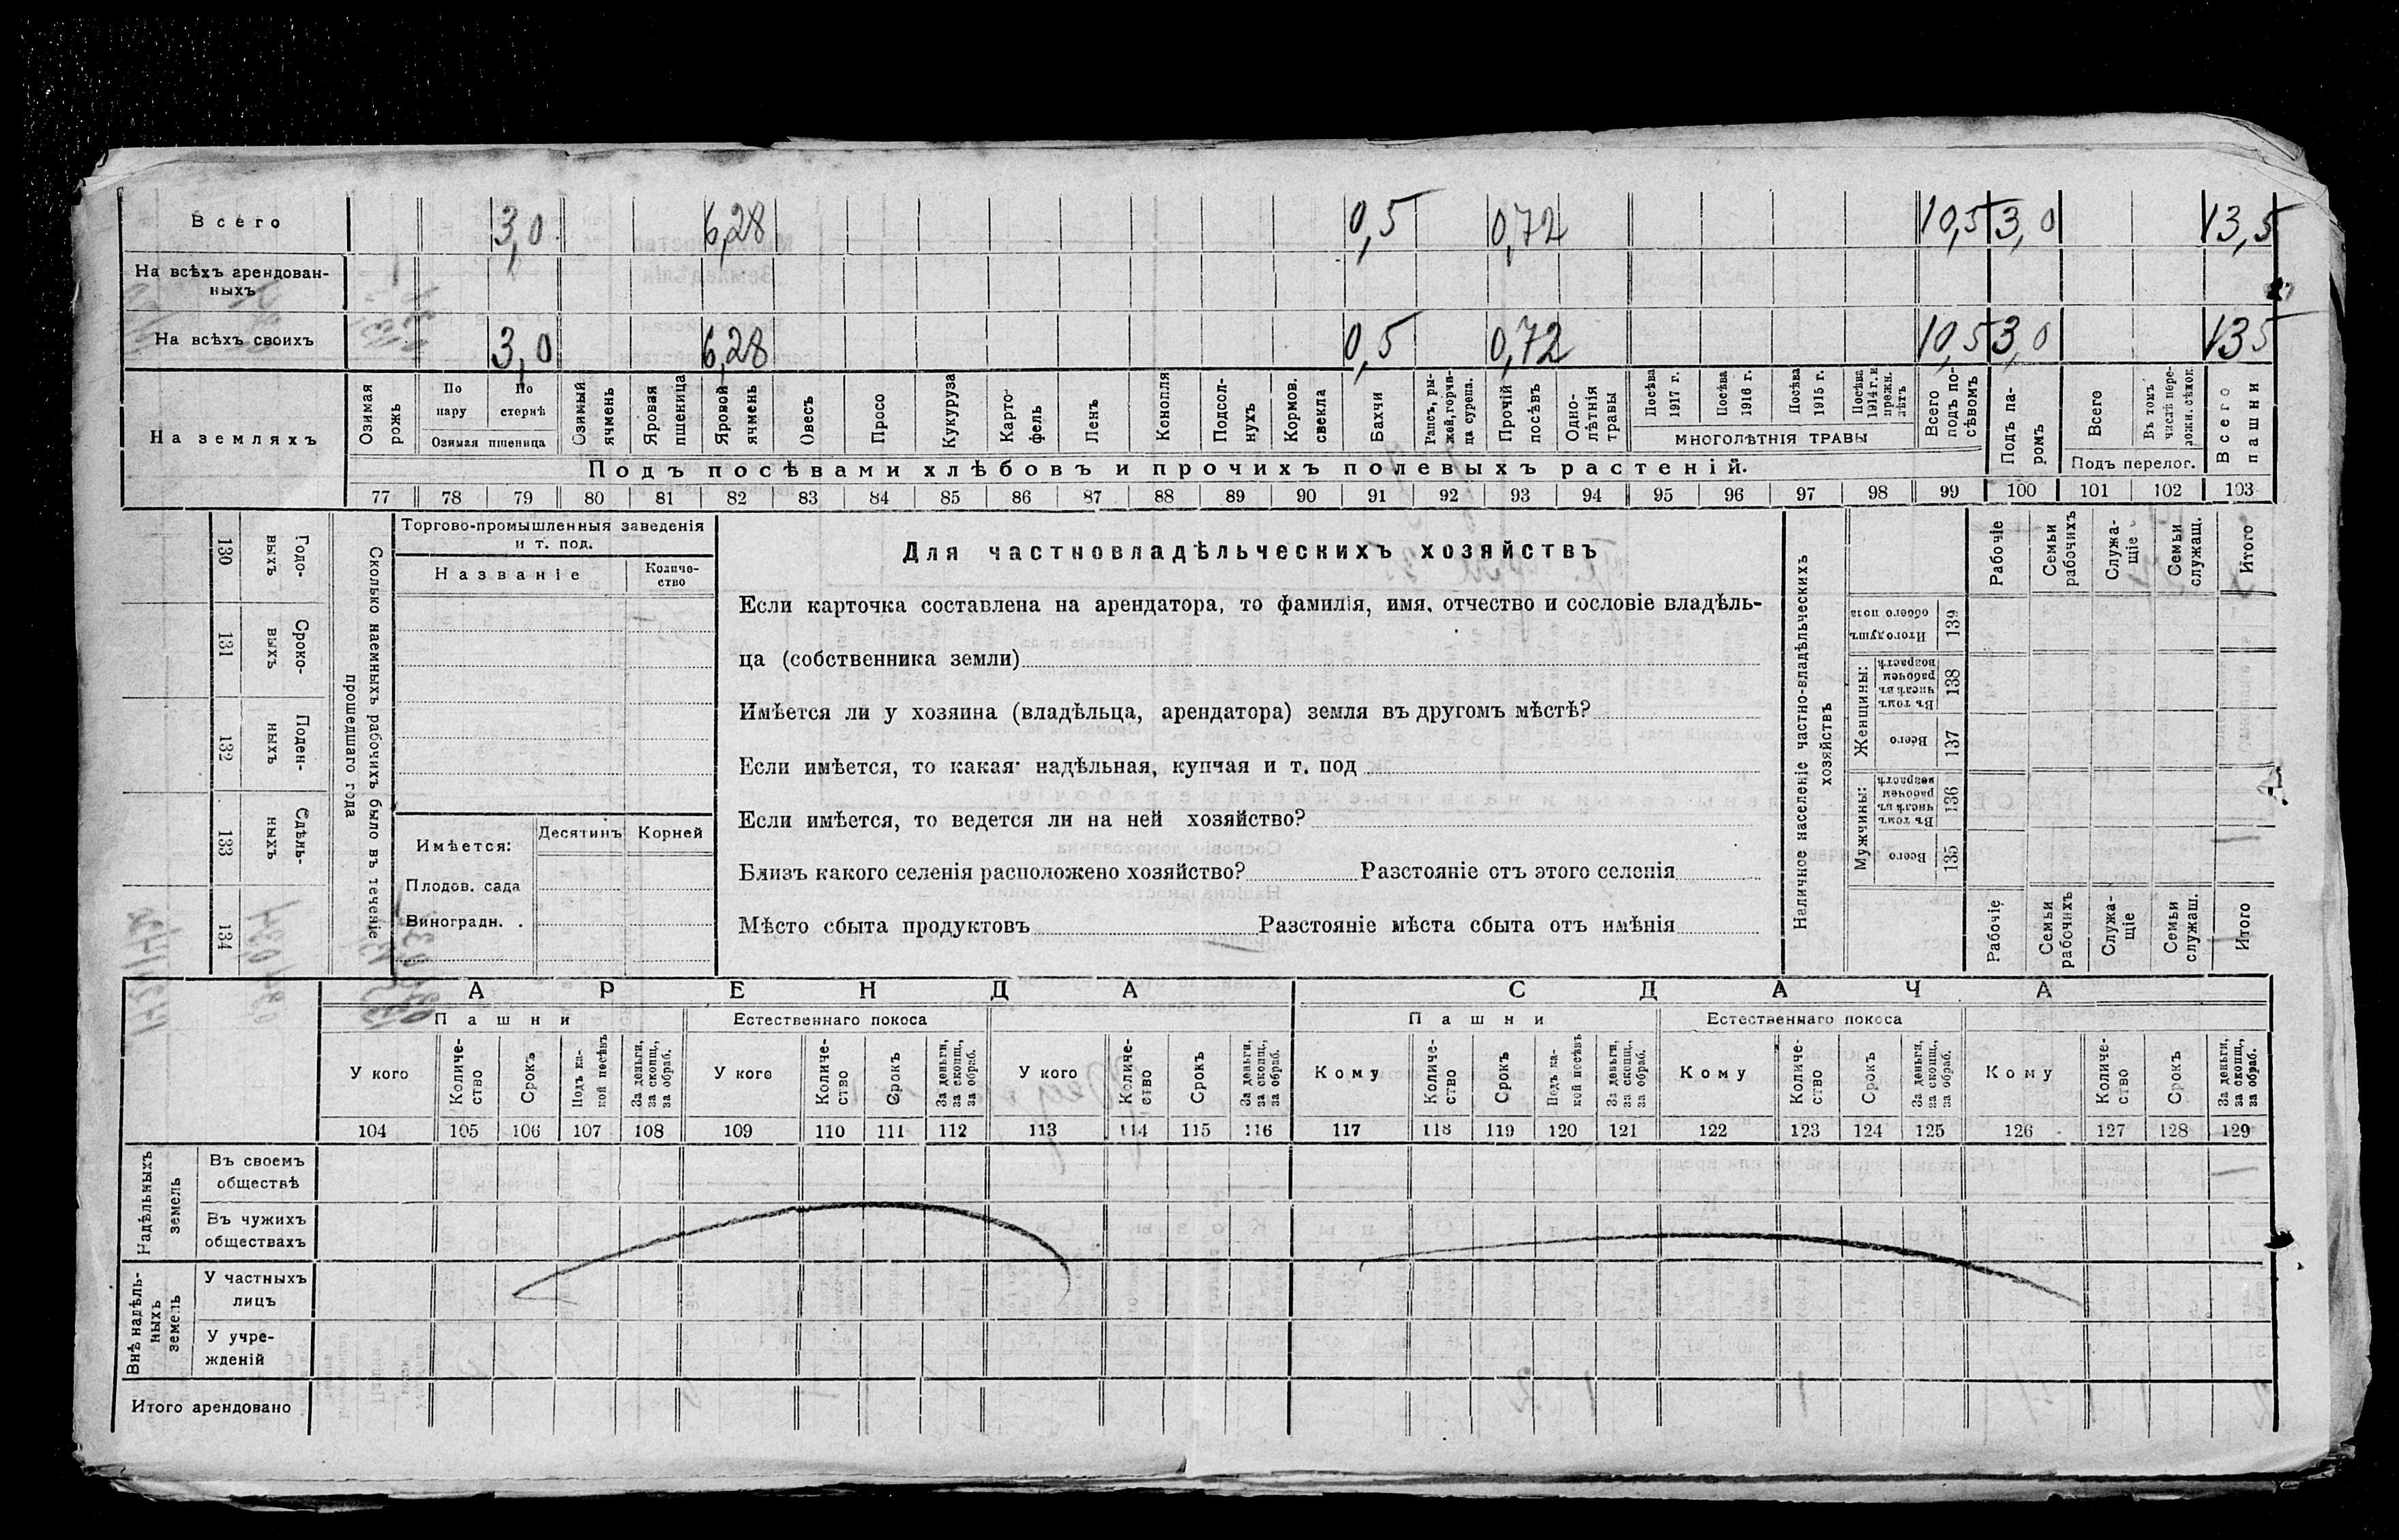 Всего 3,0 6,28 0,5 0,72 10,5 3,0 13,5
На всѣхъ арендован-
ныхъ
На всѣхъ своихъ 3,0 6,28 0,5 0,72 10,5 3,0 135
На земляхъ
Озимая рожь
По пару
По стернѣ
Озимая пшеница
Озимый ячмень
Яровая пшеница
Яровой ячмень
Овесъ
Просо
Кукуруза
Карто-
фель
Ленъ
Конопля
Подсол-
нухъ
Кормов.
свекла
Бахчи
Рапсъ, ры-
жей, горчи-
ца сурепа.
Прочій
посѣвъ
Одно-
лѣтнія
травы
Посѣва
1917 г.
Посѣва
1916 г.
Посѣва
1915 г.
Посѣва
1914 г. и
прежн.
лѣтъ
МНОГОЛѢТНІЯ ТРАВЫ
Всего
подъ по-
сѣвомъ
Подъ па-
ромъ
Всего
Въ томъ
числѣ пере-
ложн. сѣнок.
Подъ перелог.
Всего
пашни
Подъ посѣвами хлѣбовъ и прочихъ полевыхъ растеній.
77 78 79 80 81 82 83 84 85 86 87 88 89 90 91 92 93 94 95 96 97 98 99 100 101 102 103
Сколько наемныхъ рабочихъ было въ теченіе
прошедшаго года
Годо-
выхъ
130
Сроко-
выхъ
131
Поден-
ныхъ
132
Сдѣль-
ныхъ
133
134
Торгово-промышленныя заведенія
и т. под.
Названіе
Количе-
ство
Имѣется:
Десятинъ
Корней
Плодов. сада
Виноградн. .
Для частновладѣльческихъ хозяйствъ
Если карточка составлена на арендатора, то фамилія, имя, отчество и сословіе владѣль-
ца (собственника земли)
Имѣется ли у хозяина (владѣльца, арендатора) земля въ другомъ мѣстѣ?
Если имѣется, то какая: надѣльная, купчая и т. под
Если имѣется, то ведется ли на ней хозяйство?
Близъ какого селенія расположено хозяйство? Разстояніе отъ этого селенія
Мѣсто сбыта продуктовъ Разстояніе мѣста сбыта отъ имѣнія
Наличное населеніе частно-владѣльческихъ
хозяйствъ
Рабочіе
Семьи
рабочихъ
Служа-
щіе
Семьи
служащ.
Итого
Итого душъ
обоего пола
139
Женщины:
Въ томъ
числѣ въ
рабочемъ
возрастѣ
138
Всего
137
Мужчины:
Въ томъ
числѣ въ
рабочемъ
возрастѣ
136
Всего
135
Рабочіе
Семьи
рабочихъ
Служа-
щіе
Семьи
служащ.
Итого
АРЕНДА
СДАЧА
Пашни
Естественнаго покоса
Пашни
Естественнаго покоса
У кого
Количе-
ство
Срокъ
Подъ ка-
кой посѣвъ
За деньги,
за скопщ.,
за обраб.
У кого
Количе-
ство
Срокъ
За деньги,
за скопщ.,
за обраб.
У кого
Количе-
ство
Срокъ
За деньги,
за скопщ.,
за обраб.
Кому
Количе-
ство
Срокъ
Подъ ка-
кой посѣвъ
За деньги,
за скопщ.,
за обраб.
Кому
Количе-
ство
Срокъ
За деньги,
за скопщ.,
за обраб.
Кому
Количе-
ство
Срокъ
За деньги,
за скопщ.,
за обраб.
104 105 106 107 108 109 110 111 112 113 114 115 116 117 118 119 120 121 122 123 124 125 126 127 128 129
Надѣльныхъ
земель
Въ своемъ
обществѣ
Въ чужихъ
обществахъ
Внѣ надѣль-
ныхъ
земель
У частныхъ
лицъ
У учре-
жденій
Итого арендовано